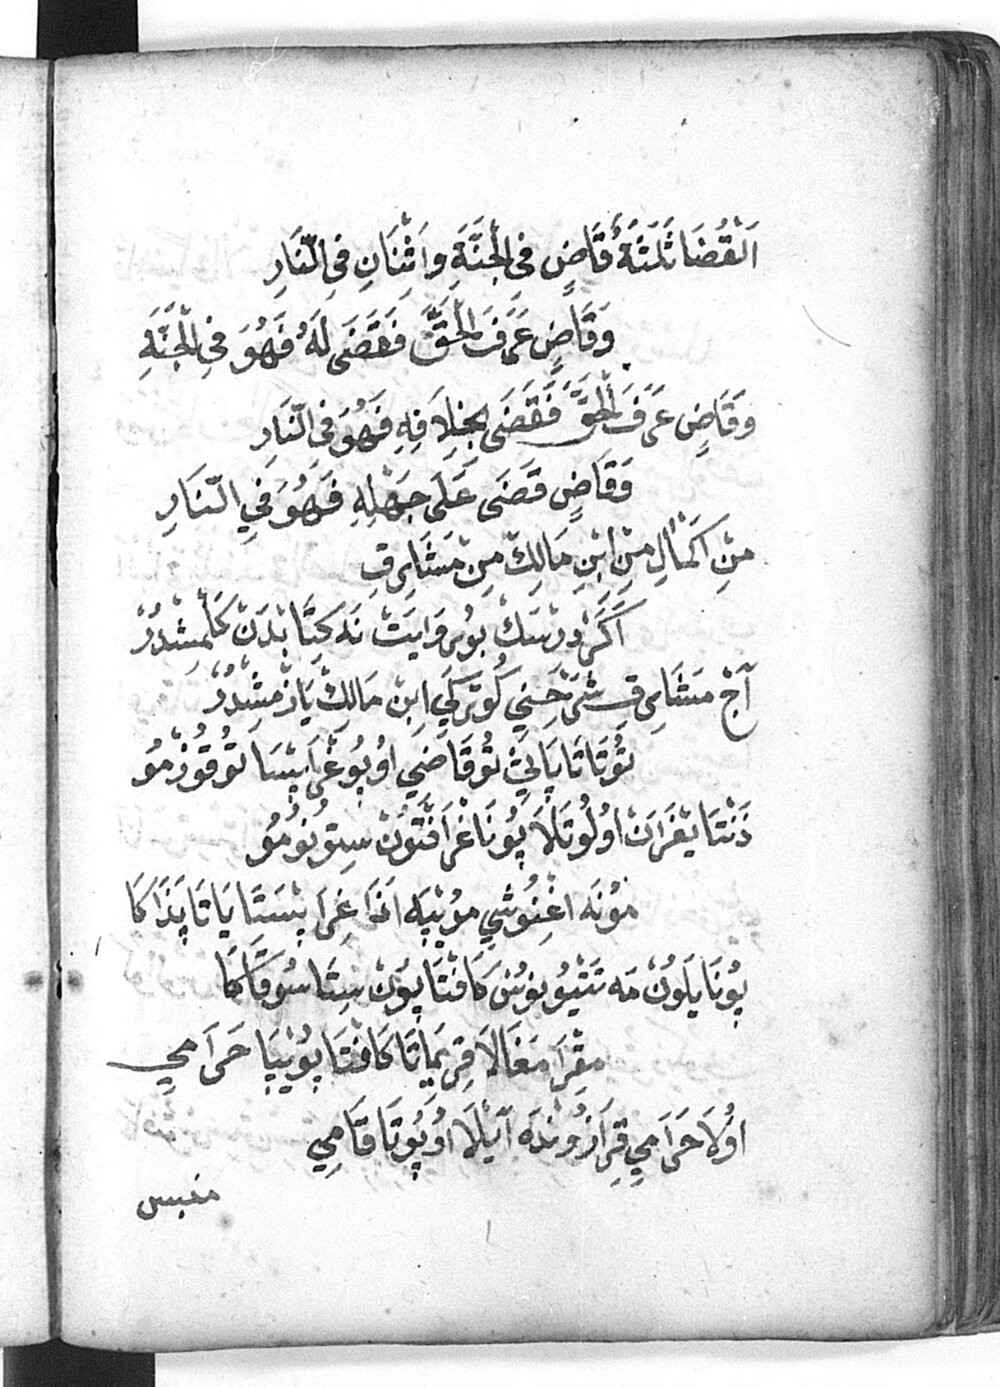 اَلْقُضَا ثَلَثَةٌ قَاضٍ فِي الْجَنَّةِ وَاثِنَانِ فِي النَّارِ
وَقَاضٍ عَرَفَ الْحَقَّ فَقَضَى لَهُ فَهُوَ فِي الْجَنَّةِ
وَقَاضٍ عَرَفَ الْحَقَّ فَقَضَى بِخِلَافِهِ فَهُوَ فِي النَّارِ
وَقَاضٍ قَضَى عَلَى جَهْلِهِ فَهُوَ فِي النَّارِ
مِنْ اَكْمَالِ مِنْ اِبْنِ مَالِكْ مِنْ مَشَارِقِ
اَكَرْ دِرْسَكْ بُو رِوَايَتْ نَه كِتَابْدَنْ كَلْمِشْدُرْ
آجْ مَشَارِقِ شَرْحِنِي كُورَكِي اِبْنِ مَالِكْ يَازْمِشْدُرْ
تُوتَاتَا پَالِيتْ تُو قَاضِي اُوپُوغْرَايْسَا تُوقُوزْمُو
دَنْتَا يْغَرَانْ اُولُوتَلَا پُونَاغْرَافْتُونْ سِتُونُومُو
مُونَه اغْنُوشِي مُويْپَه اَنَاغِرَا بِسْتَا يَاتَا پَدَاكَا
پُونَا يَلُونْ مَه سَتْيُو يُونُسْ كَافْتَا پُونْ سِتَا سُوقَاكَا
مِقْرَا مَغَالَا قِرِيمَاتَا كَافْتَا پُويْپَا حَرَامِي
اُولَا حَرَامِي قِرَازُونْدَه آيْلَا اُوپُوتَا قَامِي